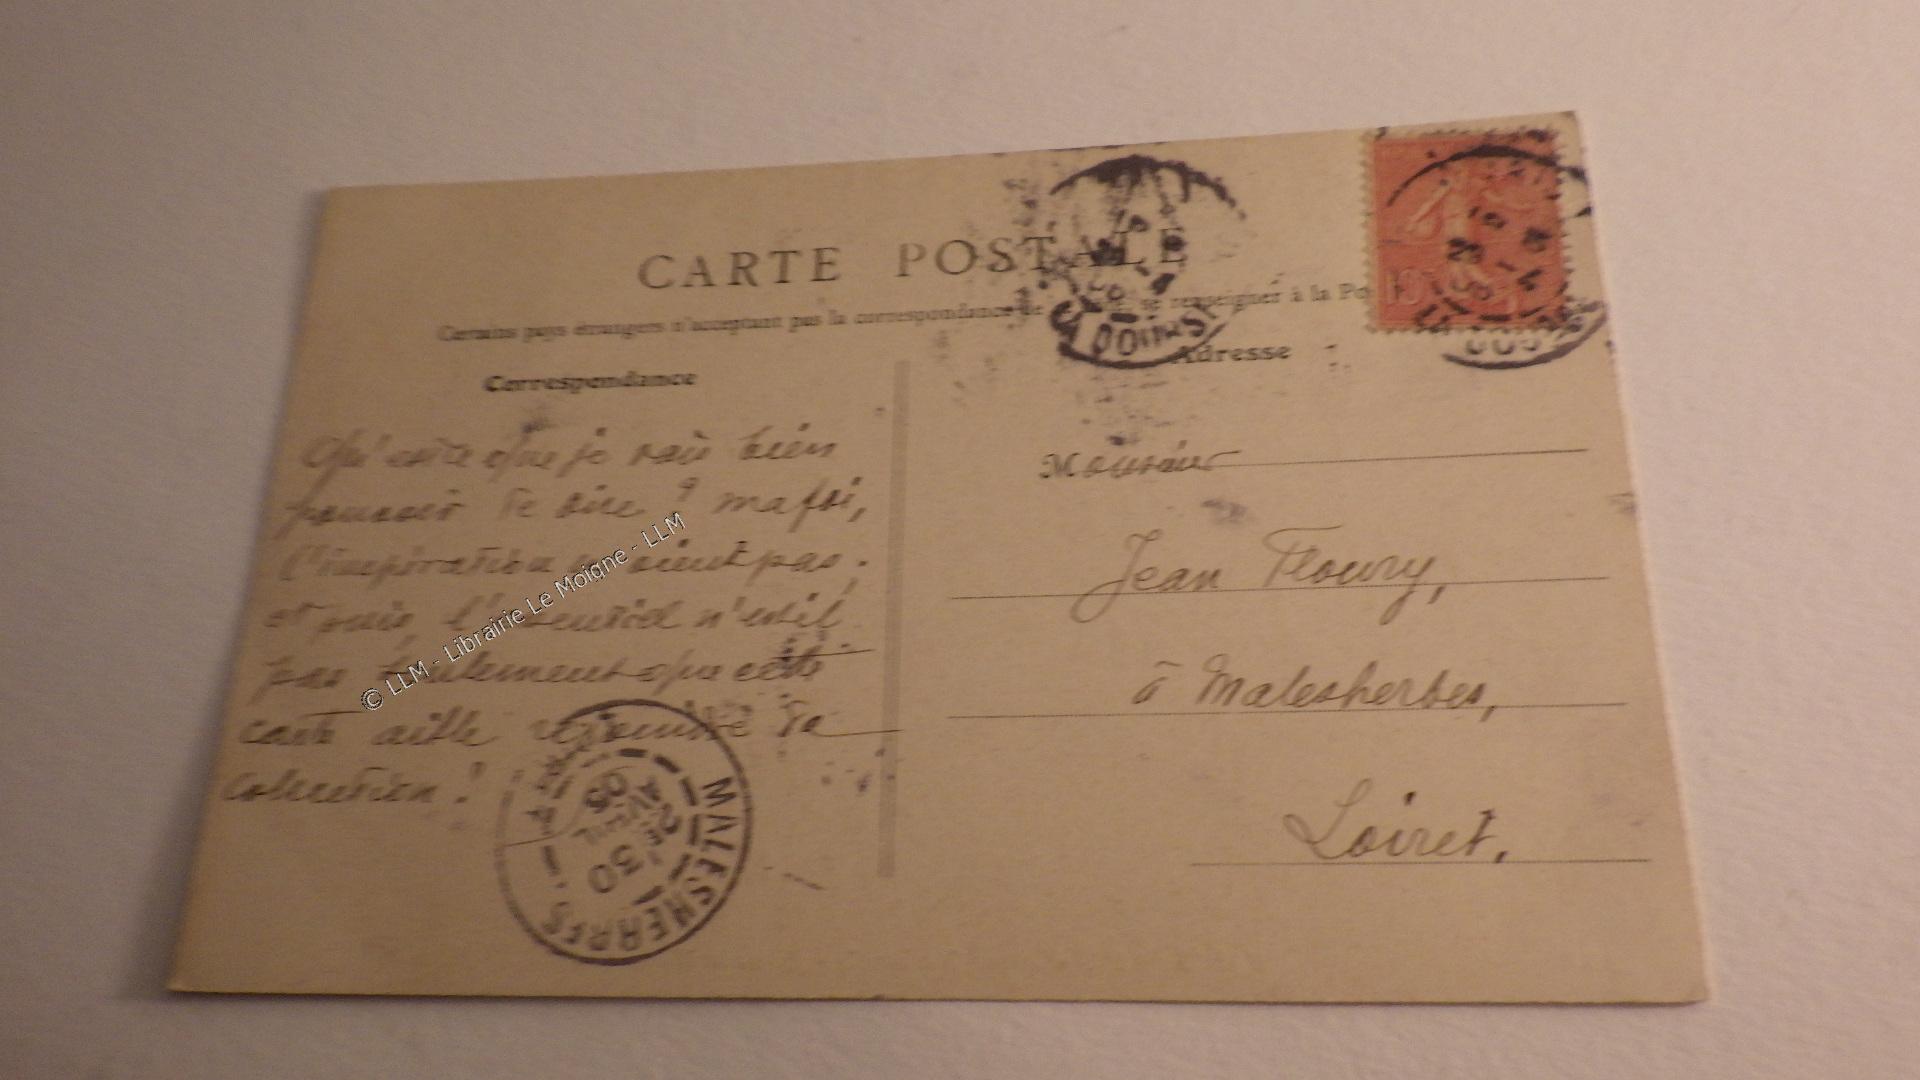 CARTE POSTALE
Certains pays étrangers n'acceptant pas la correspondance se renseigner à la Po
Correspondance
Adresse
Qu'est-ce que je vais bien
pouvoir te dire ? ma foi,
l'inspiration ne vient pas ;
et puis, l'essentiel n'est-il
pas seulement que cette
carte aille rejoindre ta
collection ?
Monsieur
Jean Floury,
à Malesherbes,
Loiret.
10
MALESHERBES
30
2E
AVRIL
05
LOIRET
© LLM - Librairie Le Moigne - LLM